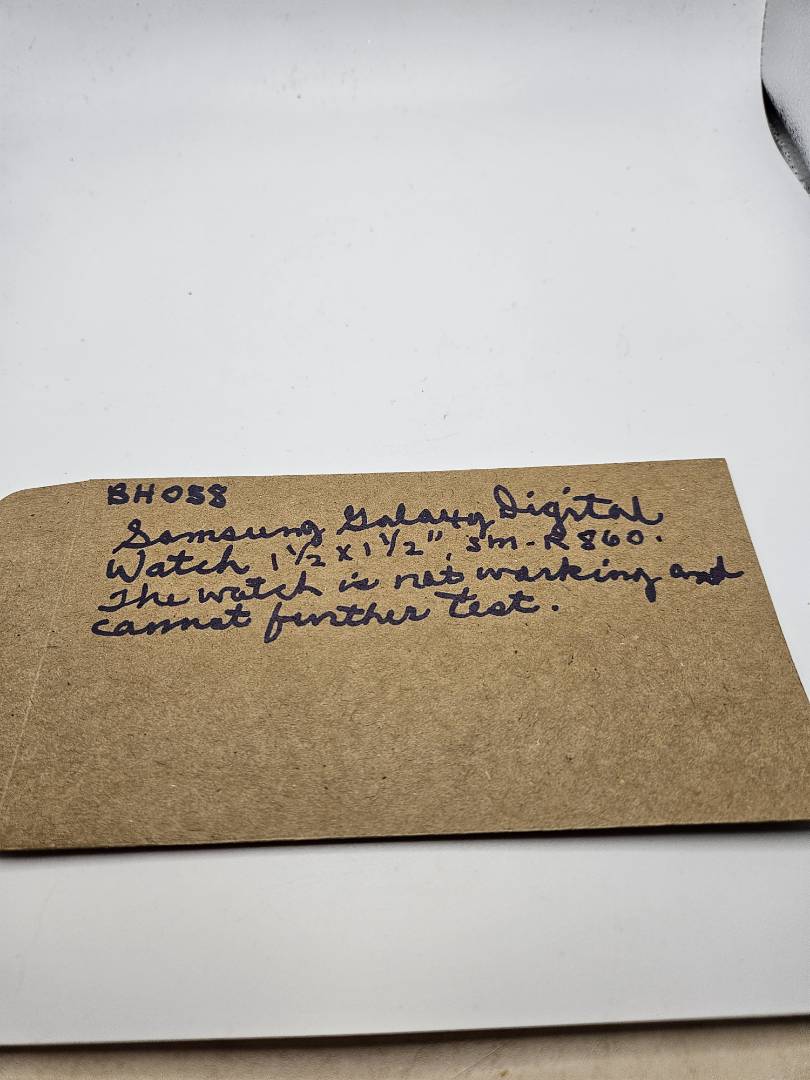 BH058
Samsung Galaxy Digital
Watch 1 1/2 x 1 1/2", SM-R860.
The watch is not working and
cannot further test.